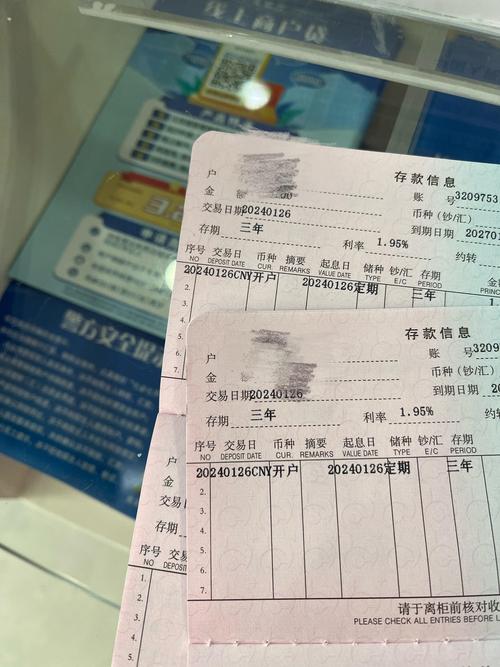 线上商户贷
存款信息
户
账 号 3209753
金 额
币种(钞/汇)
交易日期 20240126
到期日期 202701
存期 三年 利率 1.95% 约转
序号 交易日 币种 摘要 起息日 储种 钞/汇 存期 金额
NO DEPOSIT DATE CUR. REMARKS VALUE DATE TYPE E/C PERIOD PRINC
20240126CNY开户 20240126定期 三年
2.
3.
4.
5.
6.
7.
存款信息
户
账 号 3209
金
币种(钞/汇)
交易日期 20240126
到期日期 20
存期 三年 利率 1.95% 约转
序号 交易日 币种 摘要 起息日 储种 钞/汇 存期
NO DEPOSIT DATE CUR. REMARKS VALUE DATE TYPE E/C PERIOD
20240126CNY开户 20240126定期 三年
2.
3.
4.
5.
6.
7.
请于离柜前核对收
PLEASE CHECK ALL ENTRIES BEFORE L
户
金
交易日
存期
序号 交易
NO DEPOSIT
1.
2.
3.
4.
5.